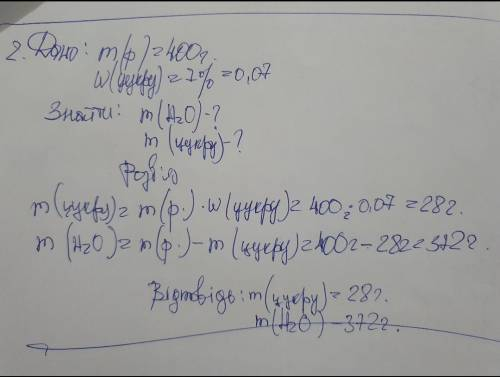 2. Дано: m(р)=400г.
w(цукру)=7%=0,07
Знайти: m(H₂O)-?
m(цукру)-?
m(цукру)=m(р.)·w(цукру)=400г·0,07=28г.
m(H₂O)=m(р.)-m(цукру)=400г-28г=372г.
Відповідь: m(цукру)=28г.
m(H₂O)-372г.